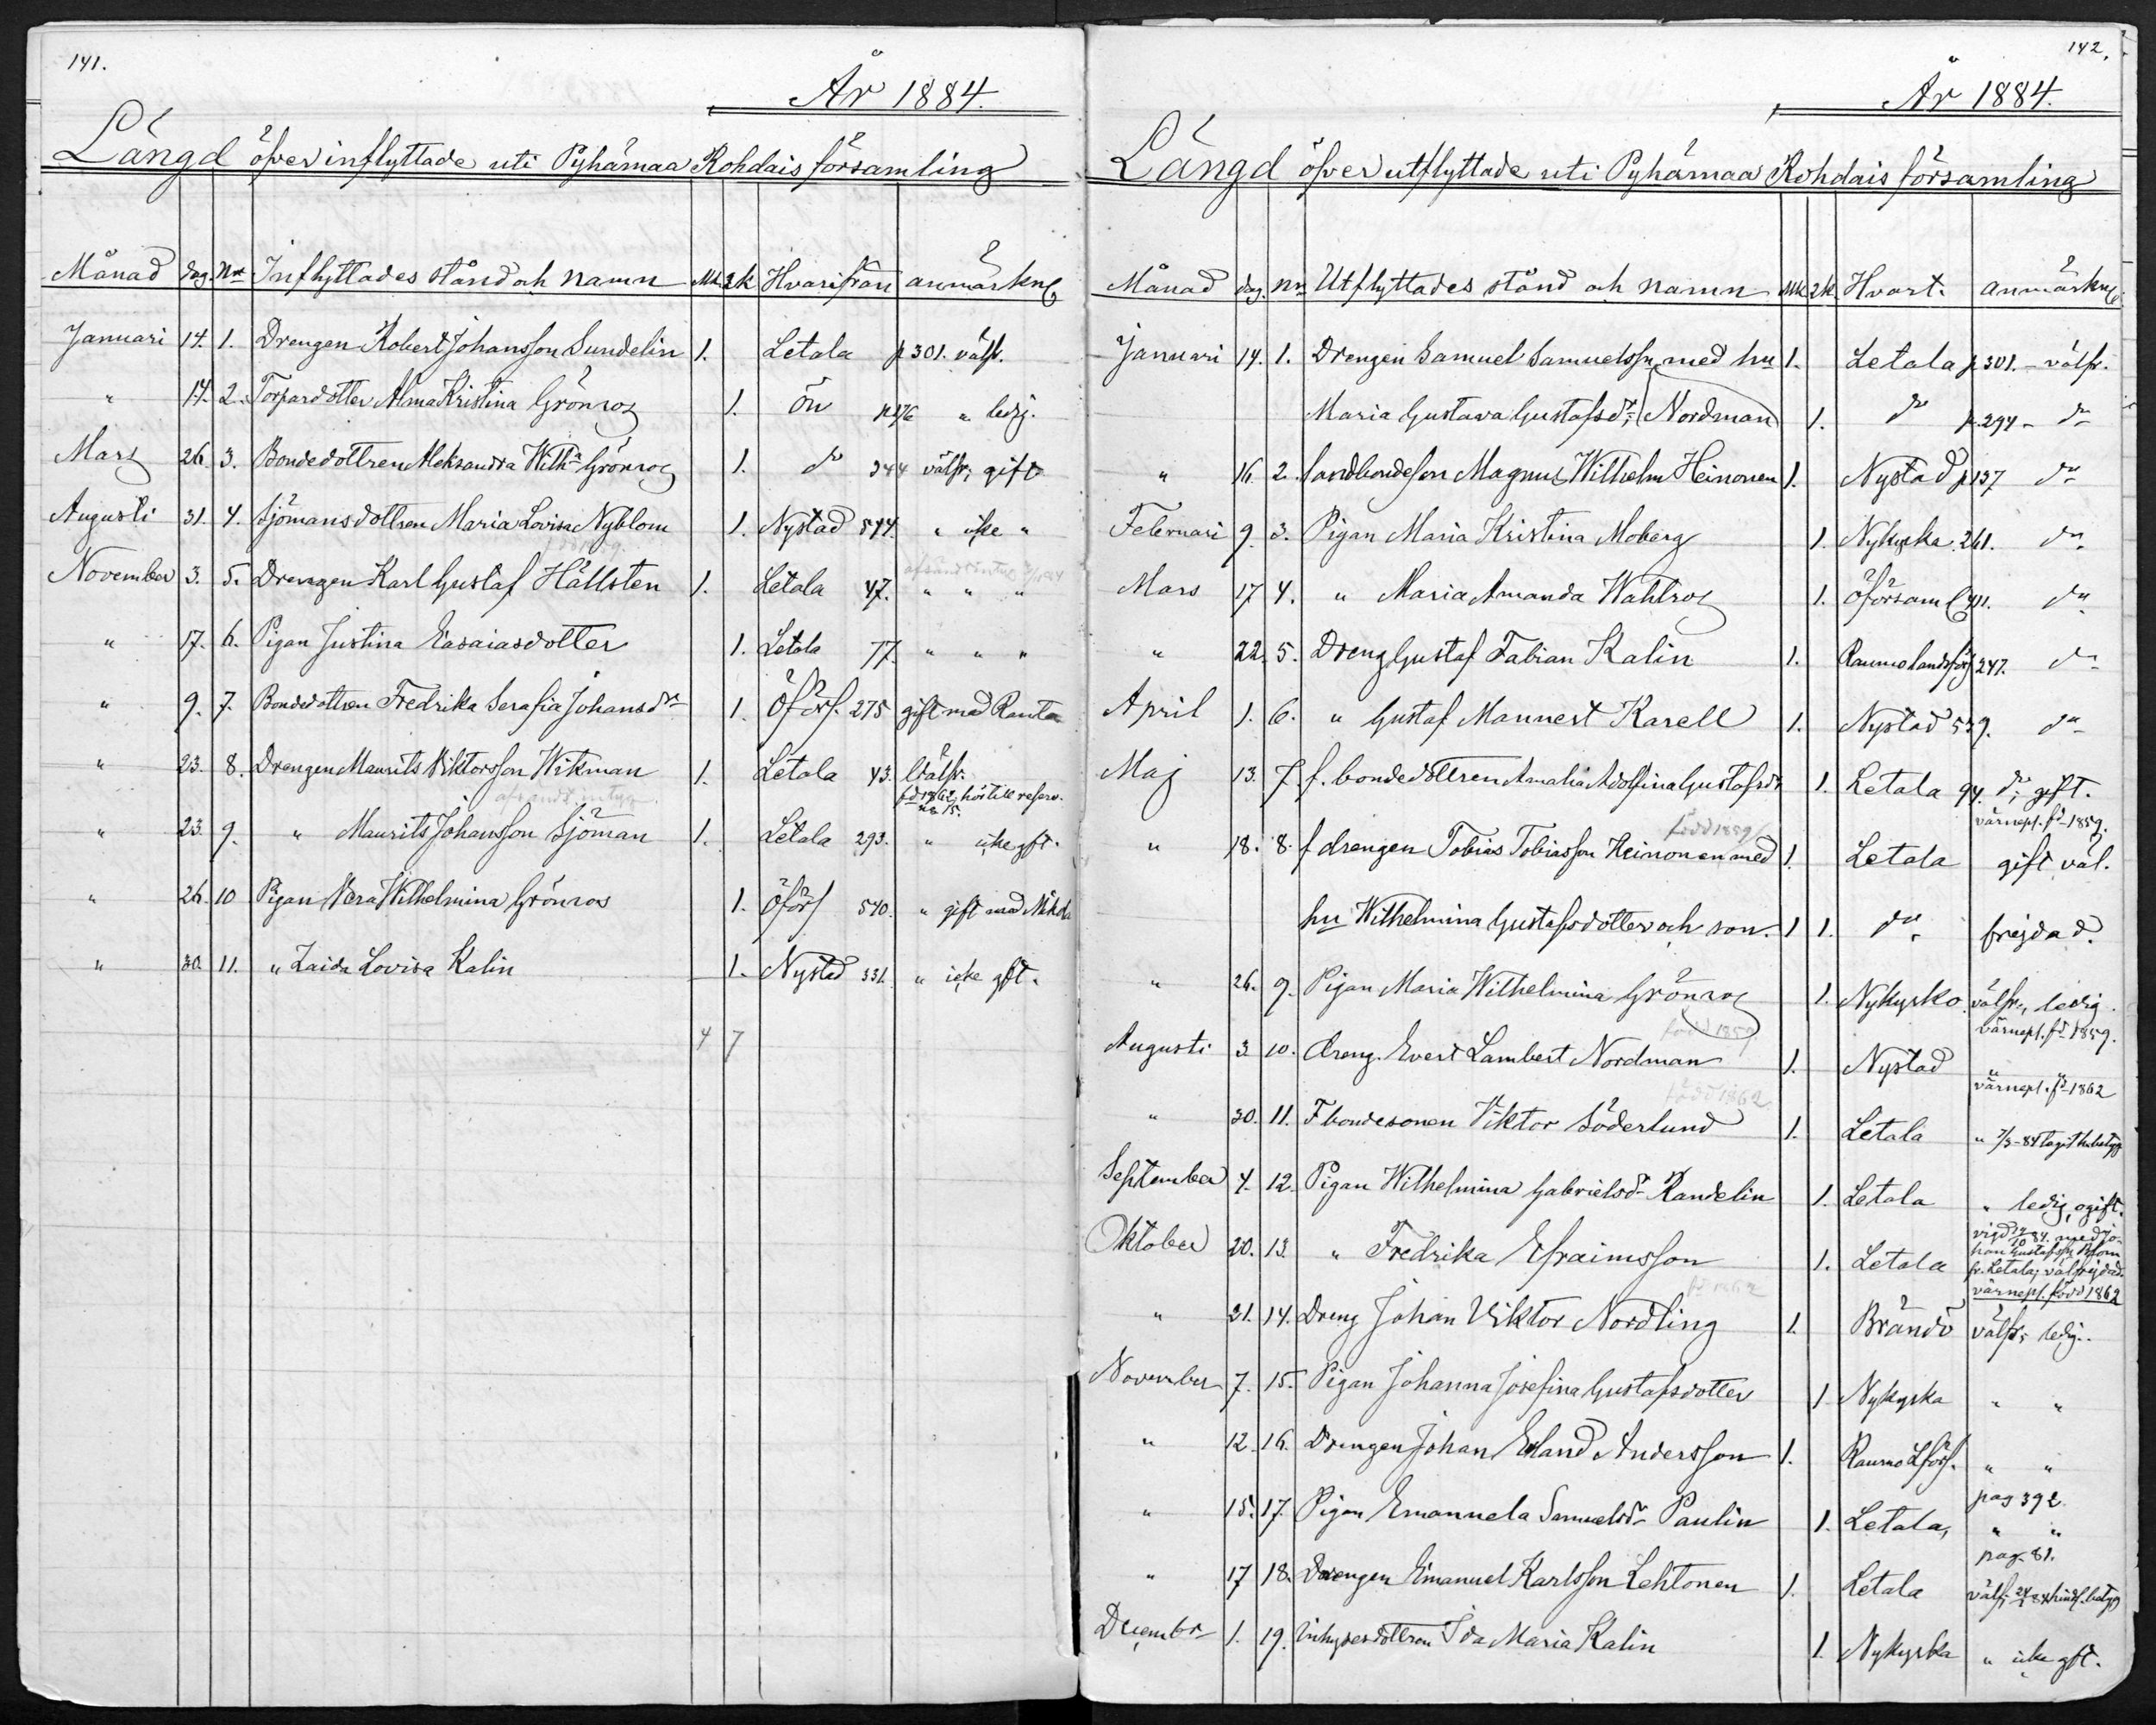 141.
År 1884.
Längd öfver inflyttade uti Pyhämaa Rohdais församling
Månad dag. No Inflyttades stånd och namn Mk. 2k Hvarifrån anmärkng
Januari 14. 1. Drengen Robert Johansson Sundelin 1. Letala p 301. välfr.
" 14. 2. Torpardotter Alma Kristina Grönros 1. Ön p 276 " ledig.
Mars 26. 3. Bondedottren Aleksandra Wilha Grönros 1. do 344 välfr; gift
Augusti 31. 4. Sjömansdottren Maria Lovisa Nyblom 1. Nystad 544. " icke "
född 1859.
November 3. 5. Drengen Karl Gustaf Hällsten 1. Letala 47. " " "
" 17. 6. Pigan Justina Easaiasdotter 1. Letala 77. " " "
" 9. 7. Bondedottren Fredrika Serafia Johansdr 1. Öförs. 275 gift med Ranta
" 23. 8. Drengen Maurits Viktorsson Wikman 1. Letala 43. Välfr.
afsändt intyg fd 1862, hör till reserv. na 15.
" 23. 9. " Maurits Johansson Sjöman 1. Letala 293. " icke gft.
" 26. 10 Pigan Vera Wilhelmina Grönros 1. Öförs 540. " gift med Mikola
" 30. 11. " Zaida Lovisa Kalin 1. Nystad 331. " icke gft.
4 7
142.
År 1884.
Längd öfver utflyttade uti Pyhämaa Rohdais församling
Månad dag. No Utflyttades stånd och namn Mk 2k Hvart. anmärkng.
Januari 14. 1. Drengen Samuel Samuelssn med hu 1. Letala p 301. - välfr.
Maria Gustava Gustafsdr; Nordman 1. do p. 294 - do
" 16. 2. landbondeson Magnus Wilhelm Heinonen 1. Nystad p 137 do
Februari 9. 3. Pigan Maria Kristina Moberg 1. Nykyrka 261. do
Mars 17 4. " Maria Amanda Wahlros 1. Öförsaml 411. do
" 22. 5. Dreng Gustaf Fabian Kalin 1. Raumo landsförs 247. do
April 1. 6. " Gustaf Mannert Karell 1. Nystad 539. do
Maj 13. 7. f. bondedottren Amalia Adolfina Gustafsdr 1. Letala 94. do; gift.
född 1859 värnepl. fd 1859.
" 18. 8. f drengen Tobias Tobiasson Heinonen med 1. Letala gift väl.
hu Wilhelmina Gustafsdotter och son. 1 1. do frejdad.
" 26. 9. Pigan Maria Wilhelmina Grönros 1. Nykyrko välfr., ledig.
född 1859 värnepl. fd 1859.
Augusti 3 10. dreng. Evert Lambert Nordman 1. Nystad "
född 1862 värnepl. fd 1862
" 30. 11. F bondesonen Viktor Söderlund 1. Letala " 7/9-84 tagit h.betyg
September 4. 12 Pigan Wilhelmina Gabrielsd- Randelin 1. Letala " ledig, ogift.
Oktober 20. 13. " Fredrika Efraimsson 1. Letala vigd 19/10 84. med Johan Gustafssn Blom fr. Letala; välfrejdad.
fd 1862 värnepl. född 1862
" 21. 14. Dreng Johan Viktor Nordling 1. Brändö välfr; ledig.
November 7. 15. Pigan Johanna Josefina Gustafsdotter 1 Nykyrka " "
" 12. 16. Drengen Johan Erland Andersson 1. Raumo Lförs. " "
pag 392
" 15. 17. Pigan Emanuela Samuelsd- Paulin 1. Letala, " "
pag. 81.
" 17 18. Drengen Emanuel Karlsson Lehtonen 1. Letala
Decembr 1. 19. Inhysesdottren Ida Maria Kalin 1. Nykyrka " icke gft.